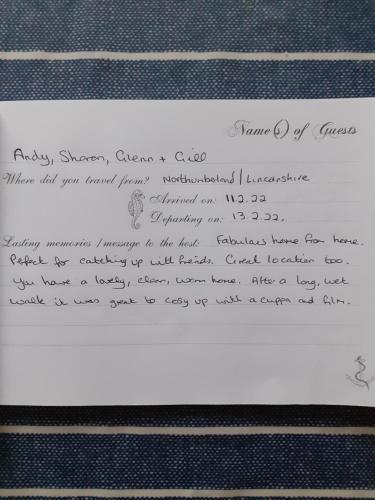 Name(s) of Guests
Andy, Sharon, Glenn + Gill
Where did you travel from? Northumberland / Lincolnshire
Arrived on: 11.2.22
Departing on: 13.2.22.
Lasting memories / message to the host: Fabulous home from home.
Perfect for catching up with friends. Great location too.
You have a lovely, clean, warm home. After a long, wet
walk it was great to cosy up with a cuppa and film.